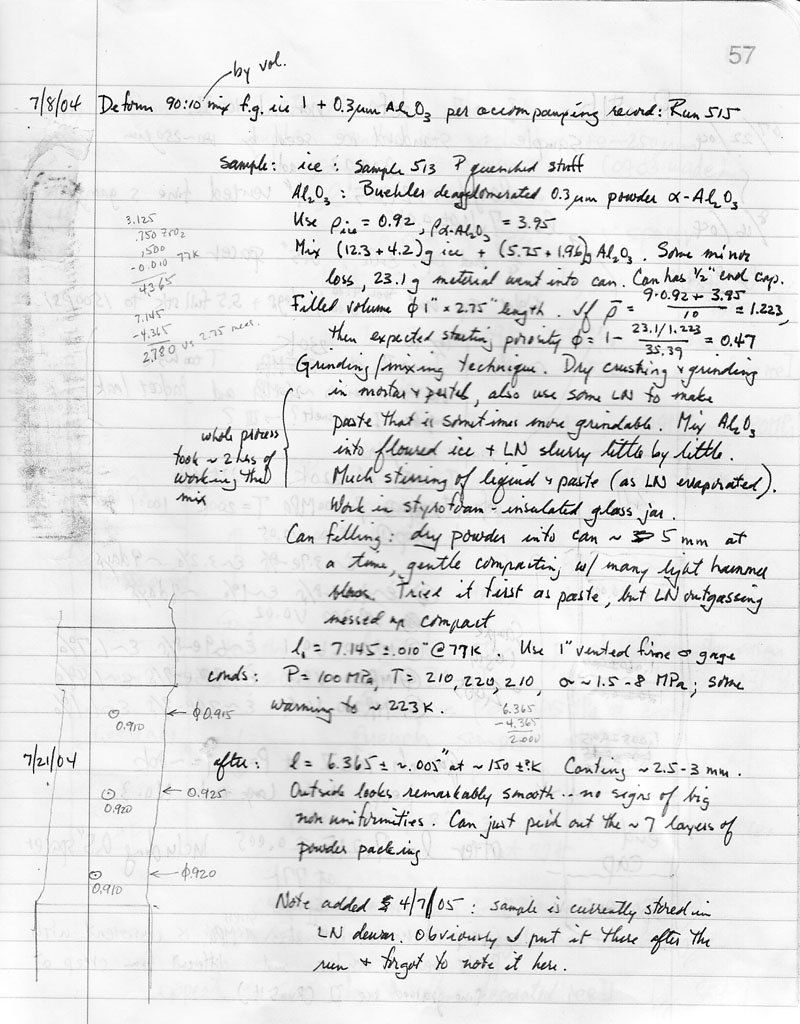 57
by vol.
7/8/04 Deform 90:10 mix f.g. ice 1 + 0.3µm Al₂O₃ per accompanying record: Run 515
Sample: ice: Sample 513 P quenched stuff
Al₂O₃: Buehler deagglomerated 0.3µm powder α-Al₂O₃
Use ρice = 0.92, ρα-Al₂O₃ = 3.95
Mix (12.3+4.2)g ice + (5.75+1.96)g Al₂O₃. Some minor
loss, 23.1g material went into can. Can has 1/2" end cap.
Filled volume ϕ 1" × 2.75" length. If ρ̄ = (9·0.92 + 3.95)/10 = 1.223,
then expected starting porosity ϕ = 1 - (23.1/1.223)/35.39 = 0.47
3.125
.750 ZrO₂
.500
-0.010 77K
4.365
7.145
-4.365
2.780 vs 2.75 meas.
Grinding/mixing technique. Dry crushing & grinding
in mortar & pestel, also use some LN to make
paste that is sometimes more grindable. Mix Al₂O₃
into floured ice + LN slurry little by little.
Much stirring of liquid & paste (as LN evaporated).
Work in styrofoam-insulated glass jar.
whole process
took ~ 2 hrs of
working the
mix
Can filling: dry powder into can ~ 5 mm at
a time, gentle compacting w/ many light hammer
blows. Tried it first as paste, but LN outgassing
messed up compact
l₁ = 7.145 ± .010" @ 77K. Use 1" vented force gage
conds: P = 100 MPa, T = 210, 220, 210, σ ~ 1.5-8 MPa; some
warming to ~ 223K.
6.365
-4.365
2.000
0.910
ϕ0.915
7/21/04 after: l = 6.365 ± ~.005" at ~150 ±?K Coating ~2.5-3 mm.
Outside looks remarkably smooth -- no signs of big
non uniformities. Can just pick out the ~7 layers of
powder packing
0.925
0.920
ϕ.920
0.910
Note added 4/7/05: sample is currently stored in
LN dewar. Obviously I put it there after the
run & forgot to note it here.